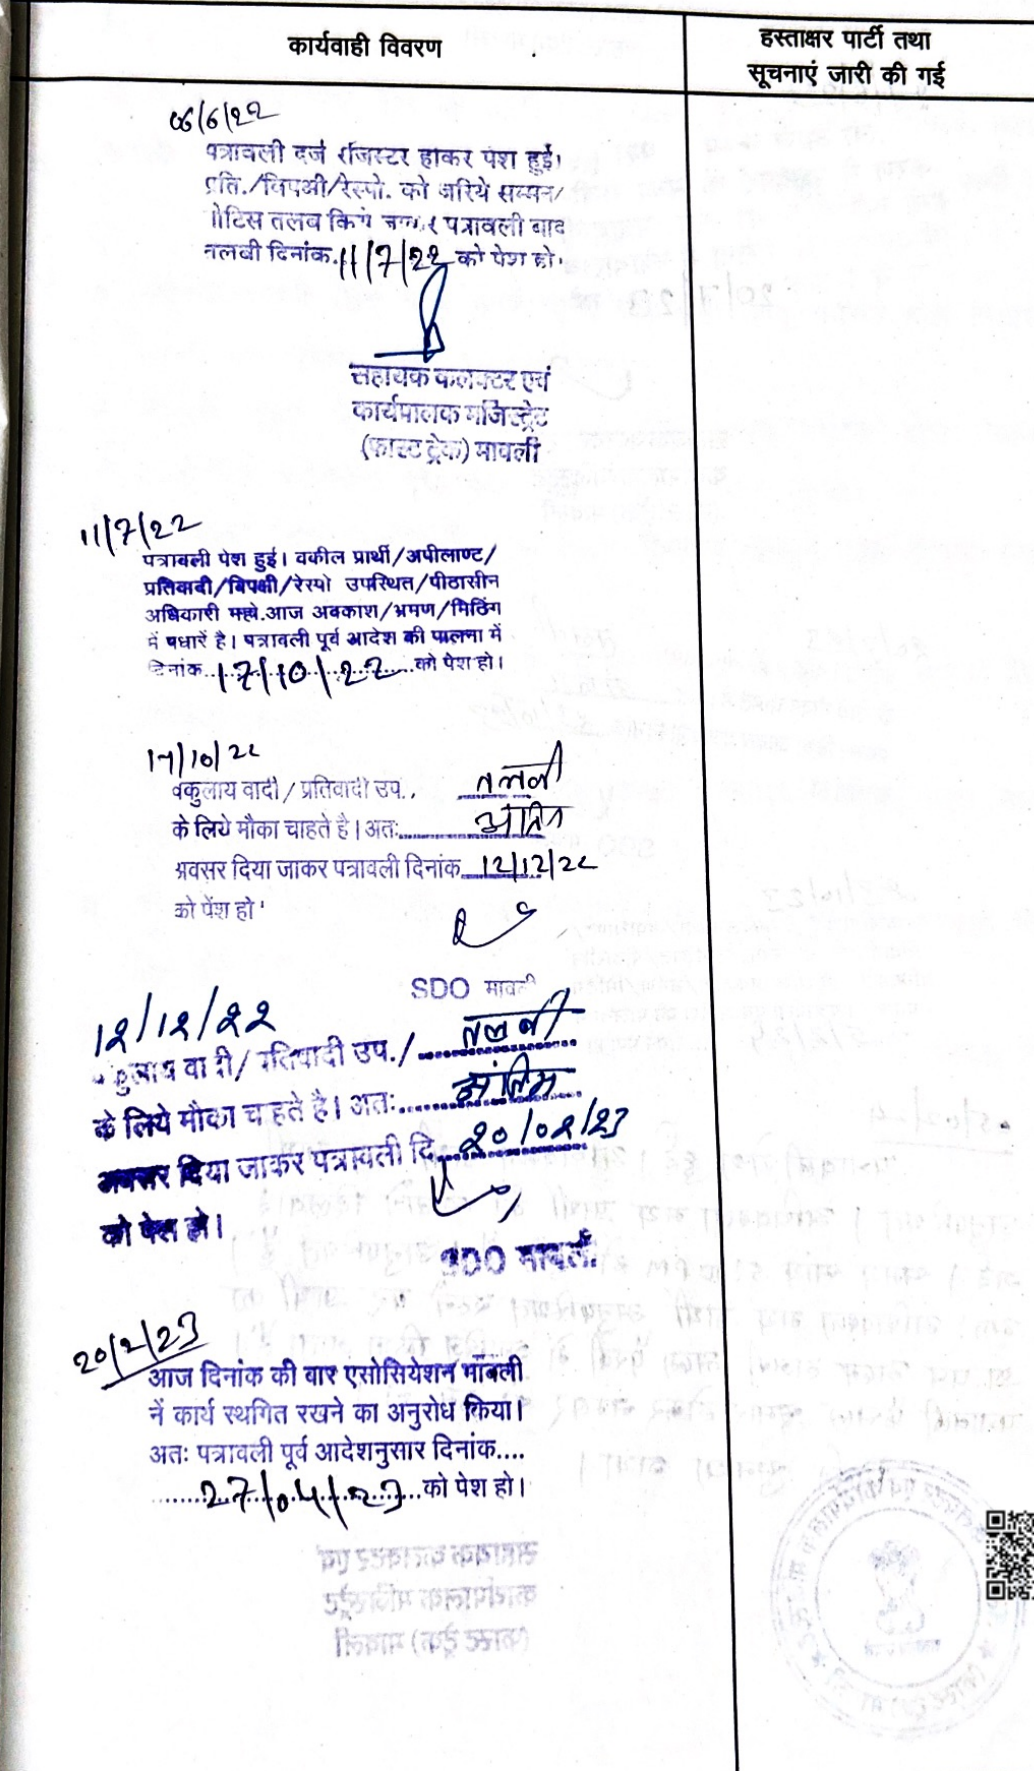 कार्यवाही विवरण
हस्ताक्षर पार्टी तथा
सूचनाएं जारी की गई
06/6/22
पत्रावली दर्ज रजिस्टर होकर पेश हुई।
प्रति./विपक्षी/रेस्पो. को जरिये सम्मन/
नोटिस तलब किये पत्रावली बाद
तलबी दिनांक 11/7/22 को पेश हो।
सहायक कलक्टर एवं
कार्यपालक मजिस्ट्रेट
(फास्ट ट्रेक) मावली
11/7/22
पत्रावली पेश हुई। वकील प्रार्थी/अपीलाण्ट/
प्रतिवादी/विपक्षी/रेस्पो उपस्थित/पीठासीन
अधिकारी आज अवकाश/भ्रमण/मिठिंग
में पधारें है। पत्रावली पूर्व आदेश की पालना में
दिनांक..17/10/22...को पेश हो।
17/10/22
वकुलाय वादी/प्रतिवादी उप.. तलबी
के लिये मौका चाहते है। अतः........ अंतिम
अवसर दिया जाकर पत्रावली दिनांक 12/12/22
को पेंश हो।
SDO मावली
12/12/22
वकुलाय वादी/प्रतिवादी उप./....तलबी
के लिये मौका चाहते है। अतः.....अंतिम
अवसर दिया जाकर पत्रावली दि...20/02/23
को पेश हो।
SDO मावली
20/2/23
आज दिनांक की बार एसोसियेशन मॉवली
नें कार्य स्थगित रखने का अनुरोध किया।
अतः पत्रावली पूर्व आदेशनुसार दिनांक....
......27/04/23......को पेश हो।